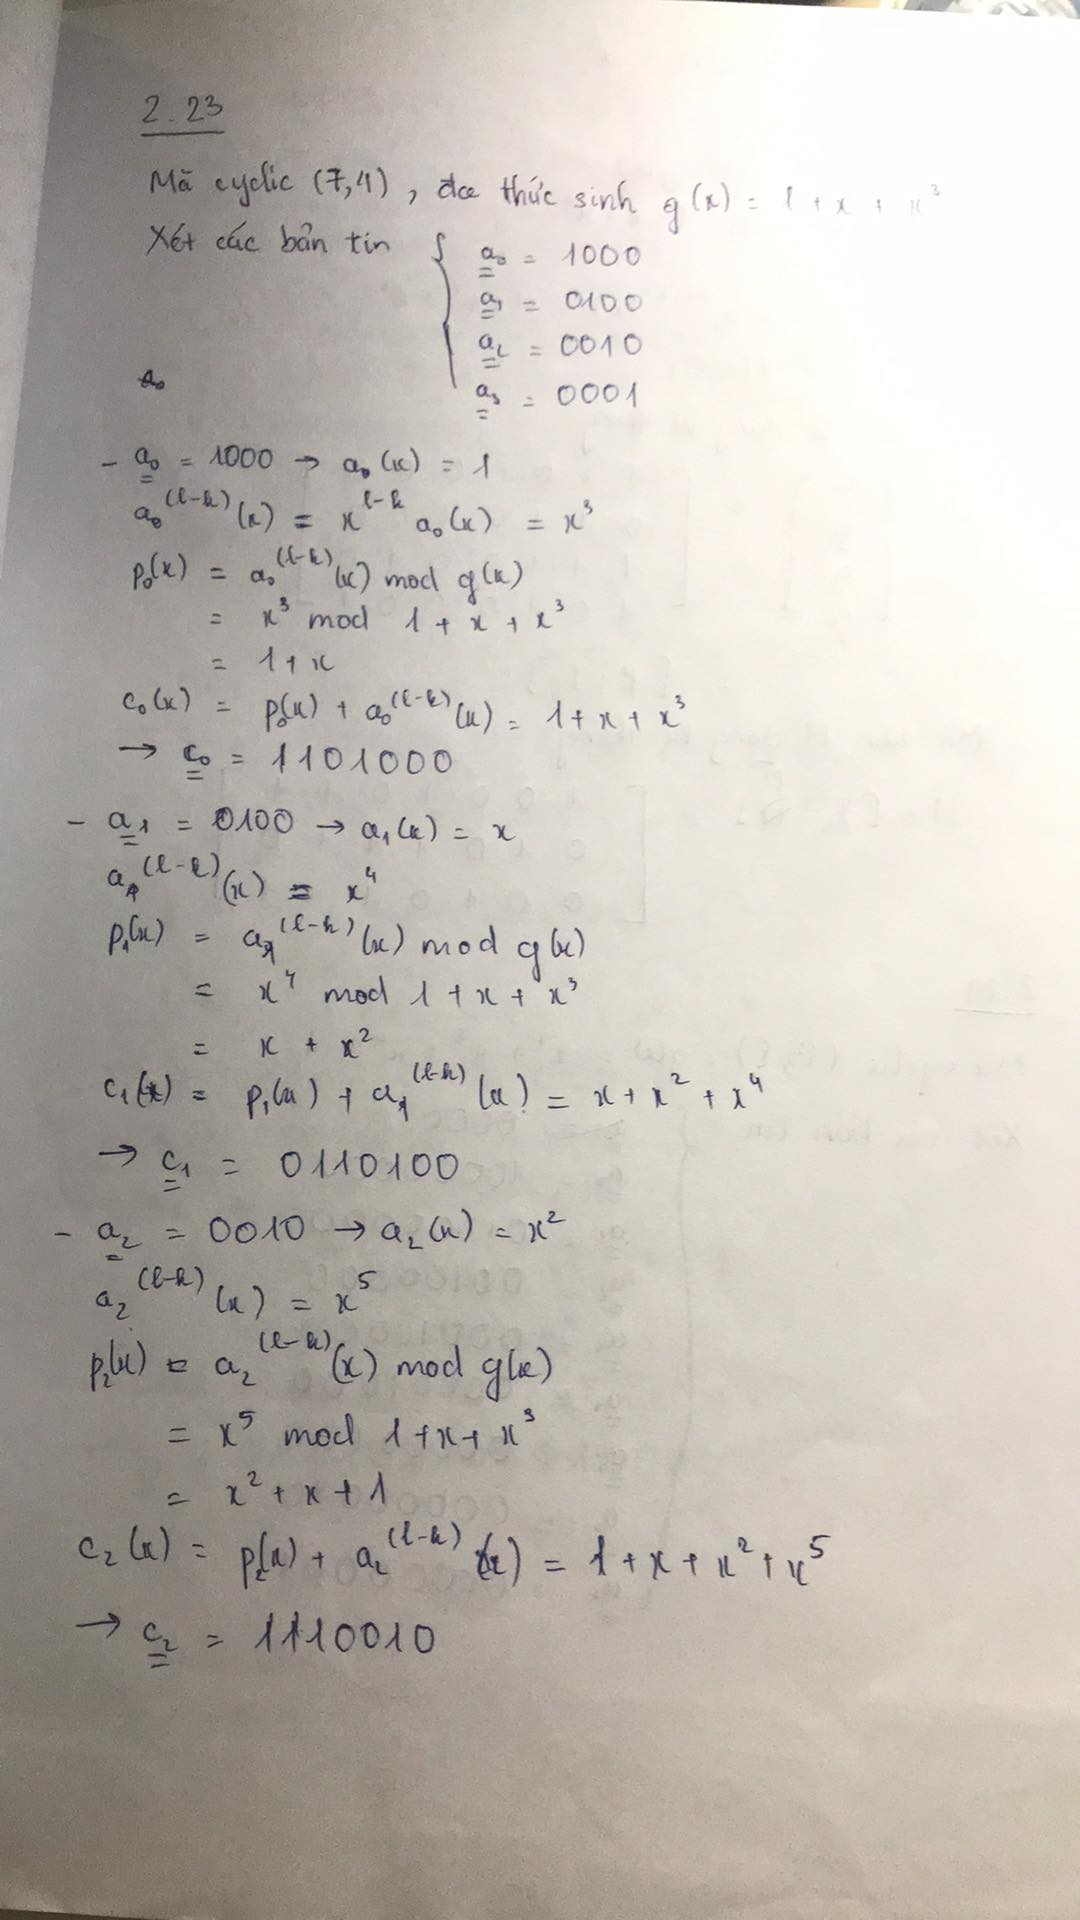 2.23
Mã cyclic (7,4), đa thức sinh g(x) = 1 + x + x³
Xét các bản tin { a₀ = 1000
a₁ = 0100
a₂ = 0010
a₀
a₃ = 0001
- a₀ = 1000 → a₀(x) = 1
a₀^(l-k)(x) = x^l-k a₀(x) = x³
p₀(x) = a₀^(l-k)(x) mod g(x)
= x³ mod 1 + x + x³
= 1 + x
c₀(x) = p₀(x) + a₀^(l-k)(x) = 1 + x + x³
→ c₀ = 1101000
- a₁ = 0100 → a₁(x) = x
a₁^(l-k)(x) = x⁴
p₁(x) = a₁^(l-k)(x) mod g(x)
= x⁴ mod 1 + x + x³
= x + x²
c₁(x) = p₁(x) + a₁^(l-k)(x) = x + x² + x⁴
→ c₁ = 0110100
- a₂ = 0010 → a₂(x) = x²
a₂^(l-k)(x) = x⁵
p₂(x) = a₂^(l-k)(x) mod g(x)
= x⁵ mod 1 + x + x³
= x² + x + 1
c₂(x) = p₂(x) + a₂^(l-k)(x) = 1 + x + x² + x⁵
→ c₂ = 1110010